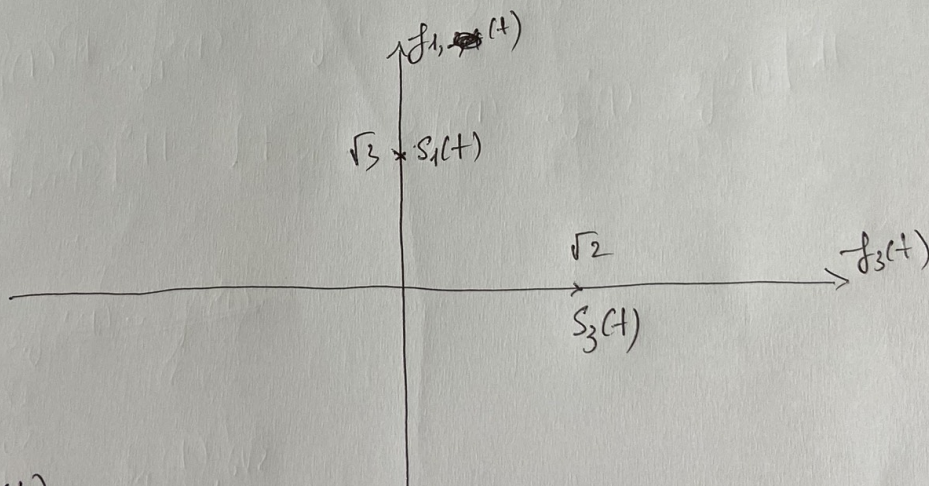 f1, (t)
√3 S1(t)
√2
f3(t)
S3(t)